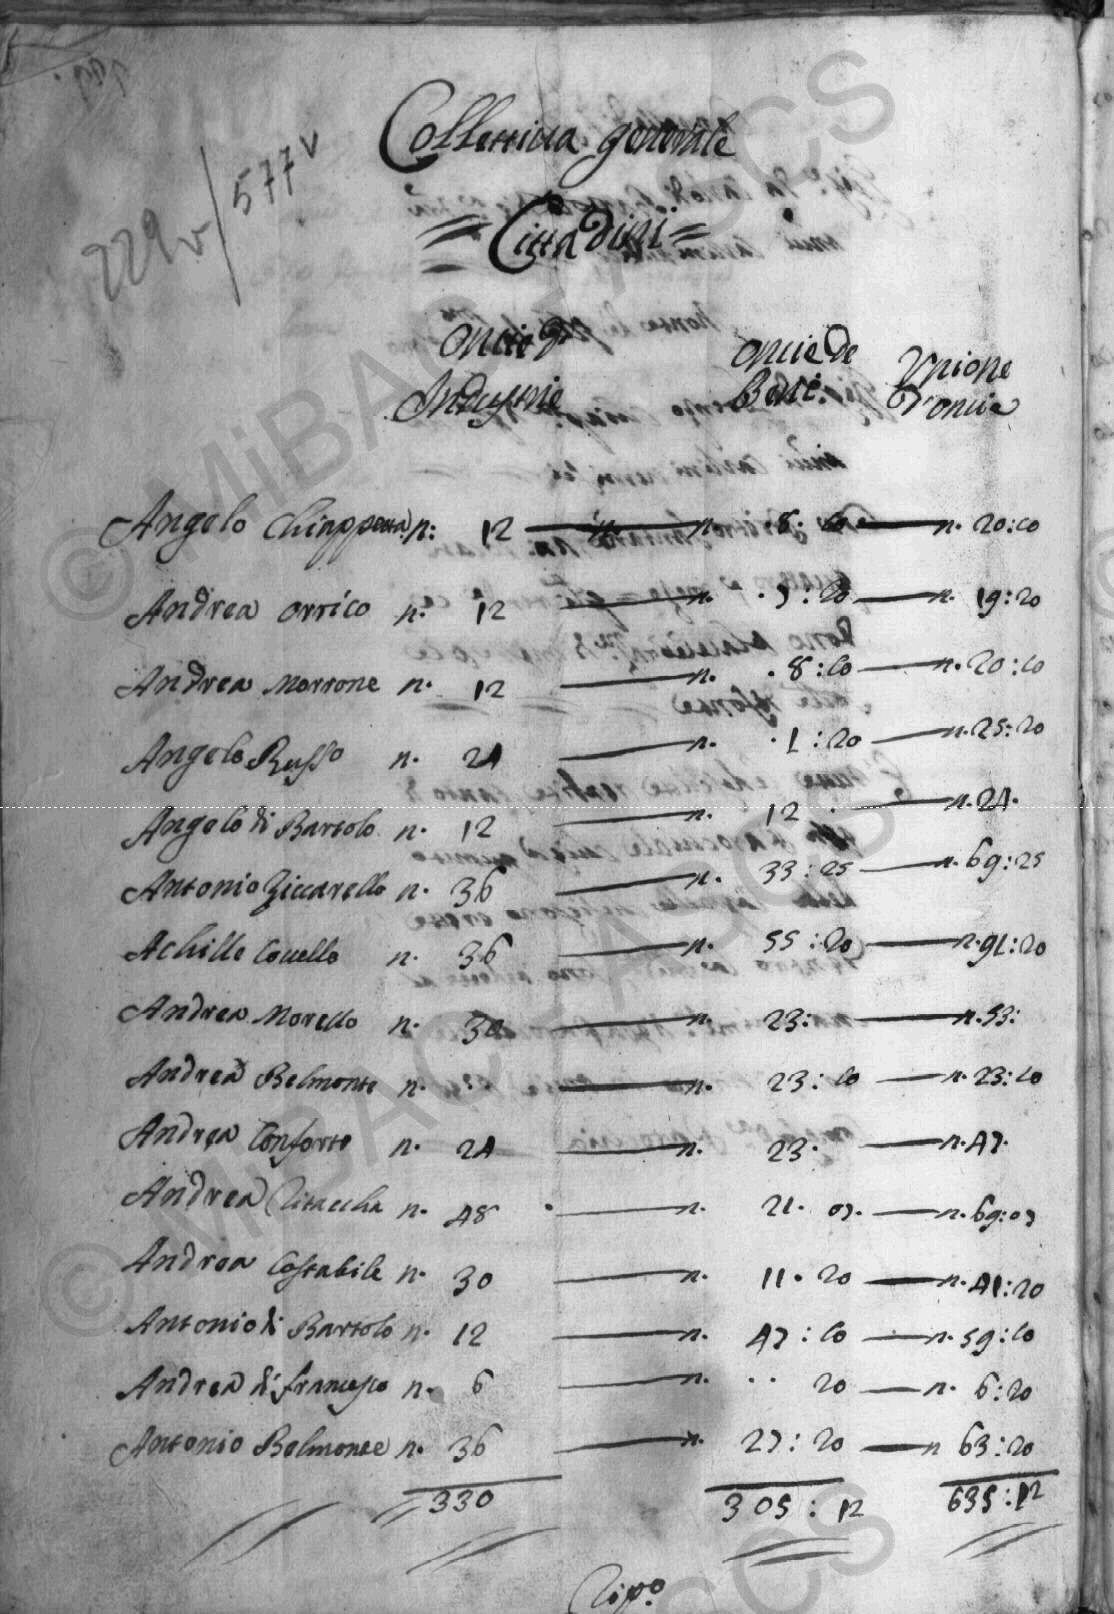 229v / 577v
Collettiva generale
= Cittadini =
oncie d'
Industrie
oncie de
Beni
Unione
d'oncie
Angelo Chiappetta n: 12 n. 8:10 n. 20:10
Andrea Orrico n. 12 n. 7:20 n. 19:20
Andrea Morrone n. 12 n. 8:10 n. 20:10
Angelo Russo n. 24 n. 1:20 n. 25:20
Angelo di Bartolo n. 12 n. 12 n. 24.
Antonio Ziccarello n. 36 n. 33:25 n. 69:25
Achille Couello n. 36 n. 55:20 n. 91:20
Andrea Morello n. 30 n. 23: n. 53:
Andrea Belmonte n. : n. 23:10 n. 23:10
Andrea Conforte n. 24 n. 23. n. 47.
Andrea Citaecha n. 48 n. 21. 07. n. 69:07
Andrea Costabile n. 30 n. 11. 20 n. 41:20
Antonio di Bartolo n. 12 n. 47:10 n. 59:10
Andrea di francesco n. 6 n. . . 20 n. 6:20
Antonio Belmonte n. 36 n. 27:20 n 63:20
330 305:12 635:12
© MiBAC - ASCS
© MiBAC - ASCS